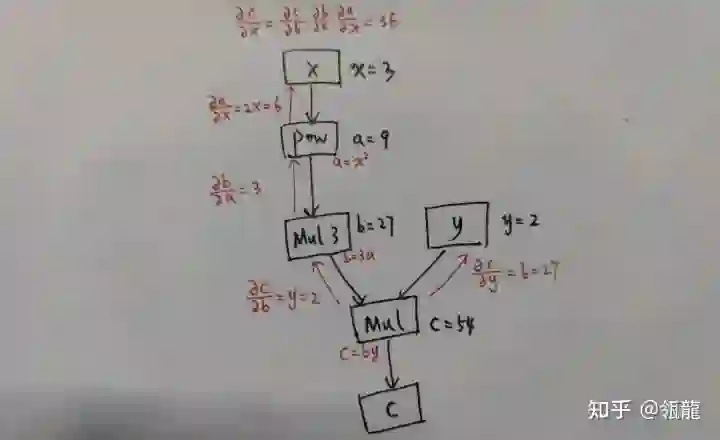 ∂c/∂x = ∂c/∂b · ∂b/∂a · ∂a/∂x = 36
x
x=3
∂a/∂x = 2x = 6
pow
a=9
a=x²
∂b/∂a = 3
Mul 3
b=27
b=3a
y
y=2
∂c/∂b = y = 2
∂c/∂y = b = 27
Mul
c=54
c=by
c
知乎 @瓴龍